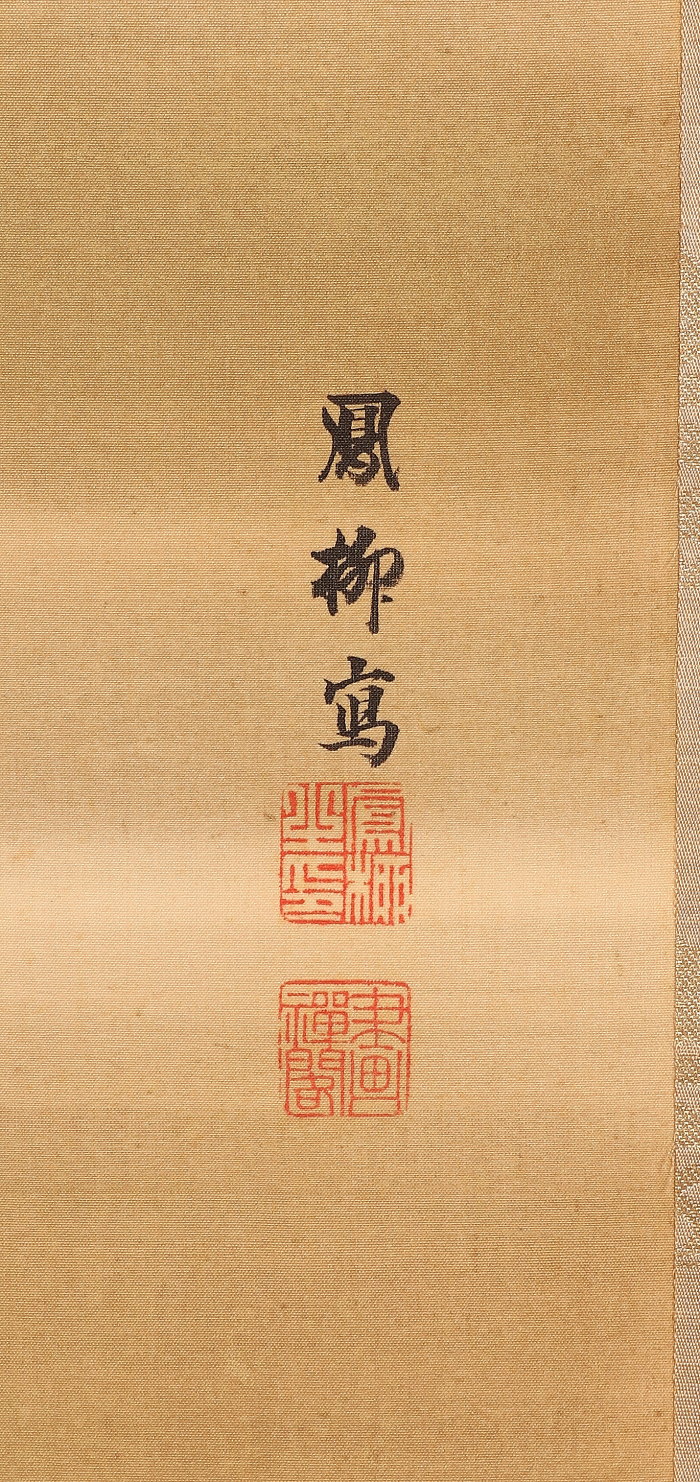 鳳柳寫
鳳柳之印
畫禪閣